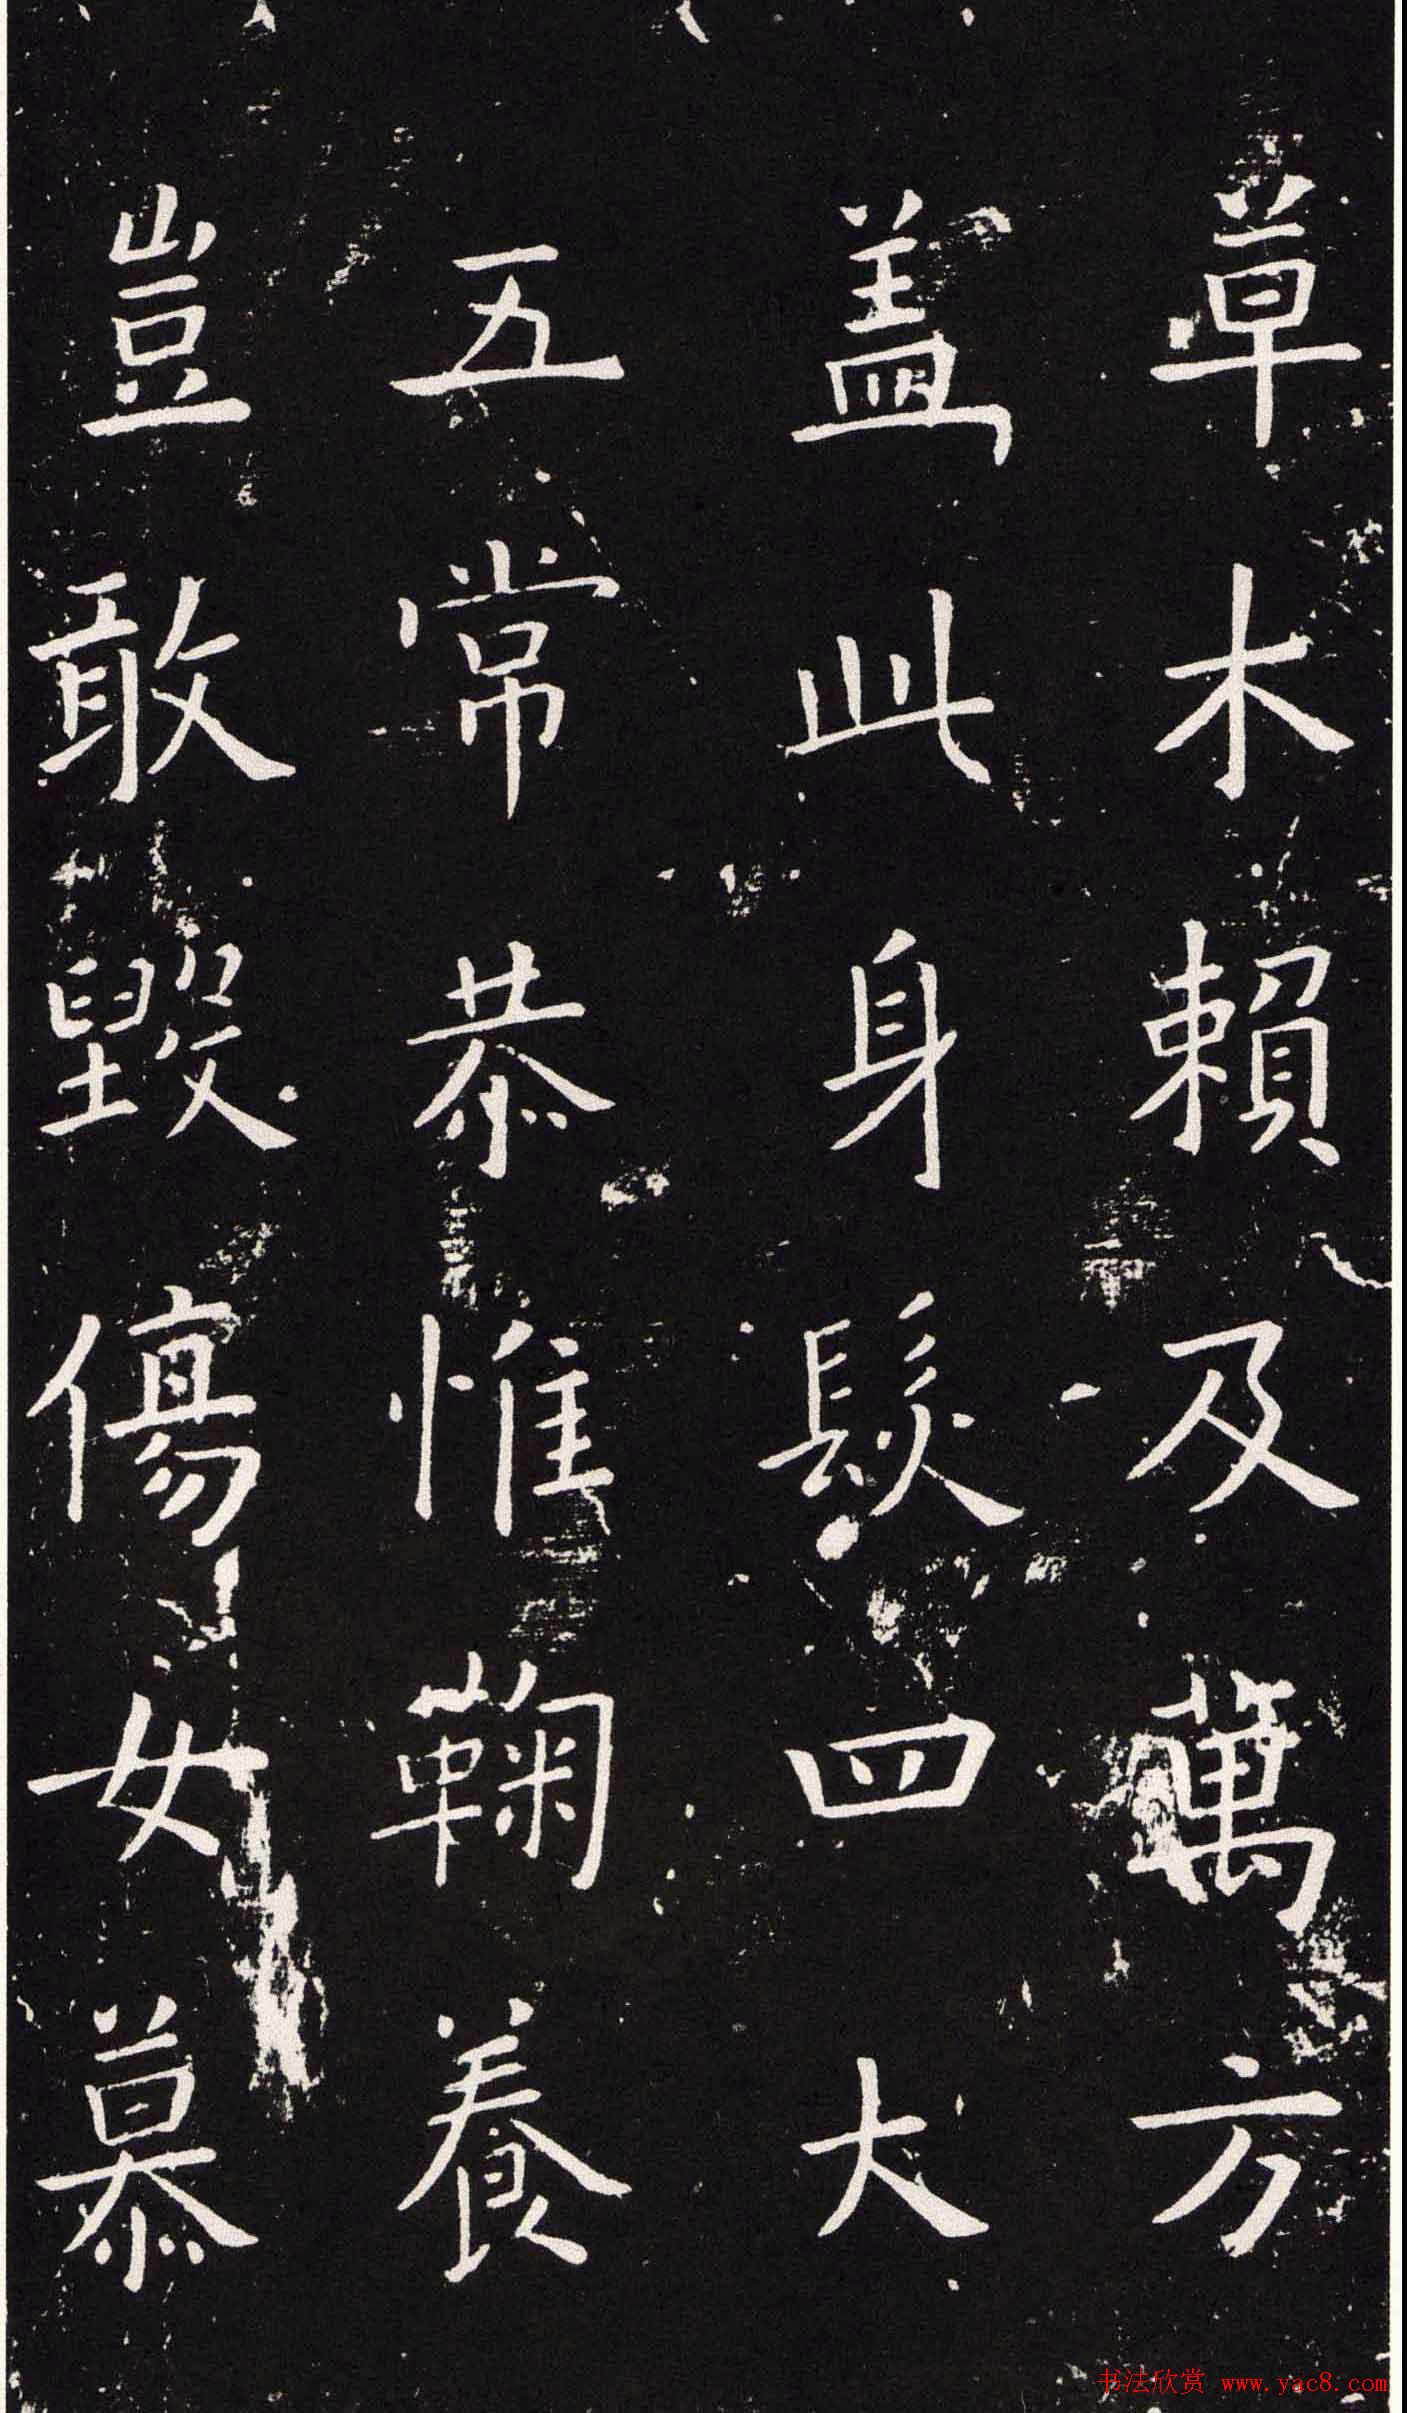 草木賴及萬方
盖此身髮四大
五常恭惟鞠養
豈敢毀傷女慕
书法欣赏 www.yac8.com